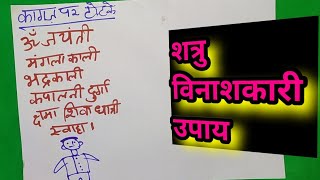 कागज पर टोटके
ॐ जयंती
मंगला काली
भद्रकाली
कपालनी दुर्गा
क्षमा शिवा धात्री
स्वाहा।
शत्रु
विनाशकारी
उपाय